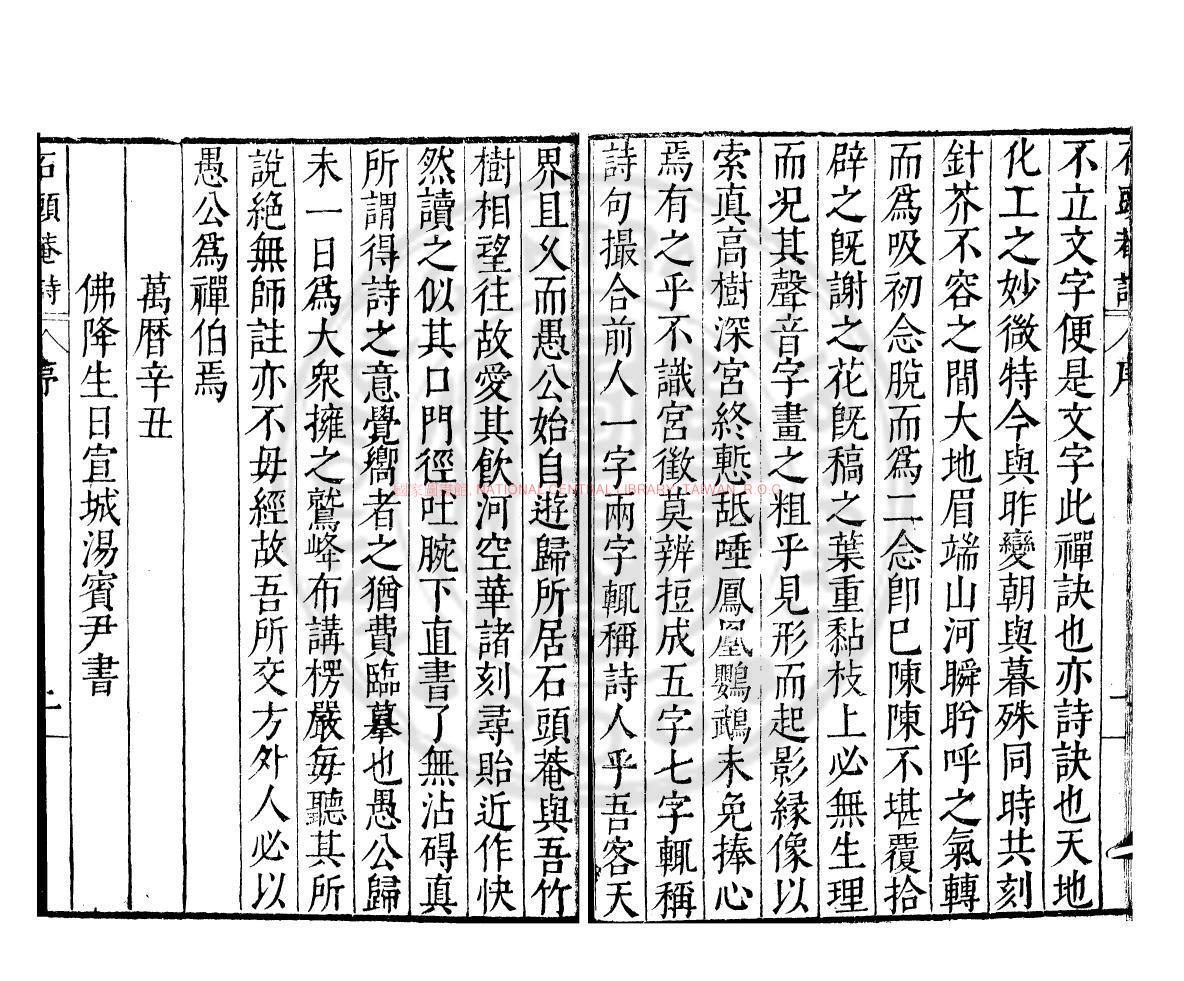 石頭菴詩 序 一
不立文字便是文字此禪訣也亦詩訣也天地
化工之妙微特今與昨變朝與暮殊同時共刻
針芥不容之間大地眉端山河瞬盻呼之氣轉
而爲吸初念脫而爲二念卽已陳陳不堪覆拾
辟之旣謝之花旣稿之葉重黏枝上必無生理
而况其聲音字畫之粗乎見形而起影緣像以
索真高樹深宮終慙舐唾鳳凰鸚鵡未免捧心
焉有之乎不識宮徵莫辨挋成五字七字輒稱
詩句撮合前人一字兩字輒稱詩人乎吾客天
界且乆而愚公始自遊歸所居石頭菴與吾竹
樹相望往故愛其飲河空華諸刻尋貽近作快
然讀之似其口門徑吐腕下直書了無沾碍真
所謂得詩之意覺嚮者之猶費臨摹也愚公歸
未一日爲大衆擁之鷲峰布講楞嚴每聽其所
說絶無師註亦不毋經故吾所交方外人必以
愚公爲禪伯焉
萬曆辛丑
佛降生日宣城湯賓尹書
石頭菴詩 序 二
國家圖書館 NATIONAL CENTRAL LIBRARY, TAIWAN, R.O.C